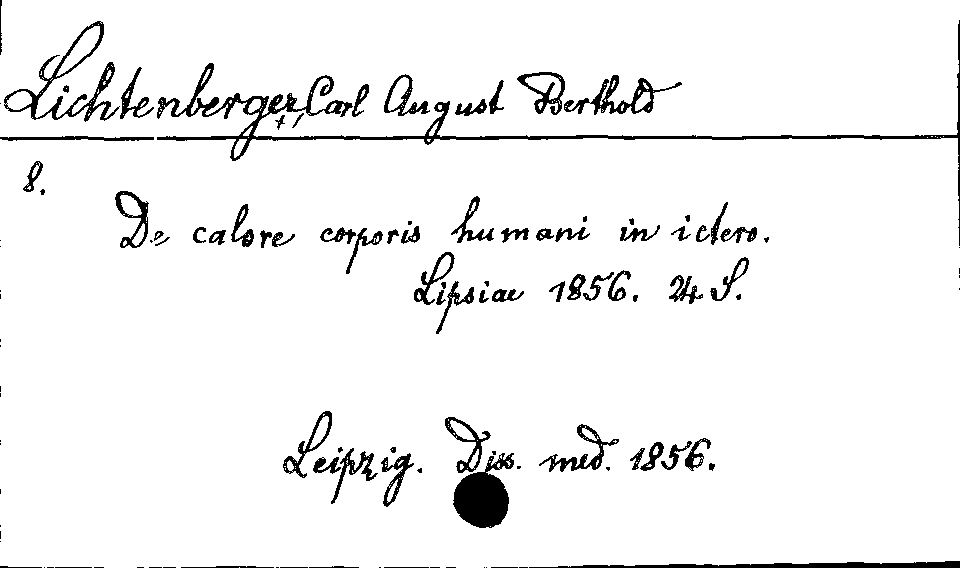 Lichtenberger, Carl August Berthold
8.
De calore corporis humani in ictero.
Lipsiae 1856. 24 S.
Leipzig. Diss. med. 1856.